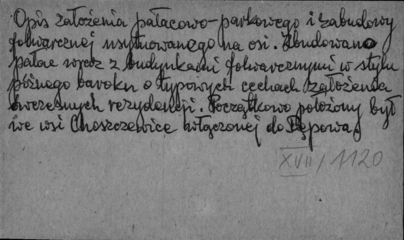 Opis założenia pałacowo-parkowego i zabudowy
folwarcznej usytuowanego na osi. Zbudowano
pałac wraz z budynkami folwarcznymi w stylu
późnego baroku o typowych cechach założenia
ówczesnych rezydencji. Początkowo położony był
we wsi Choszczewice włączonej do Dępowa.
XVIII/1120